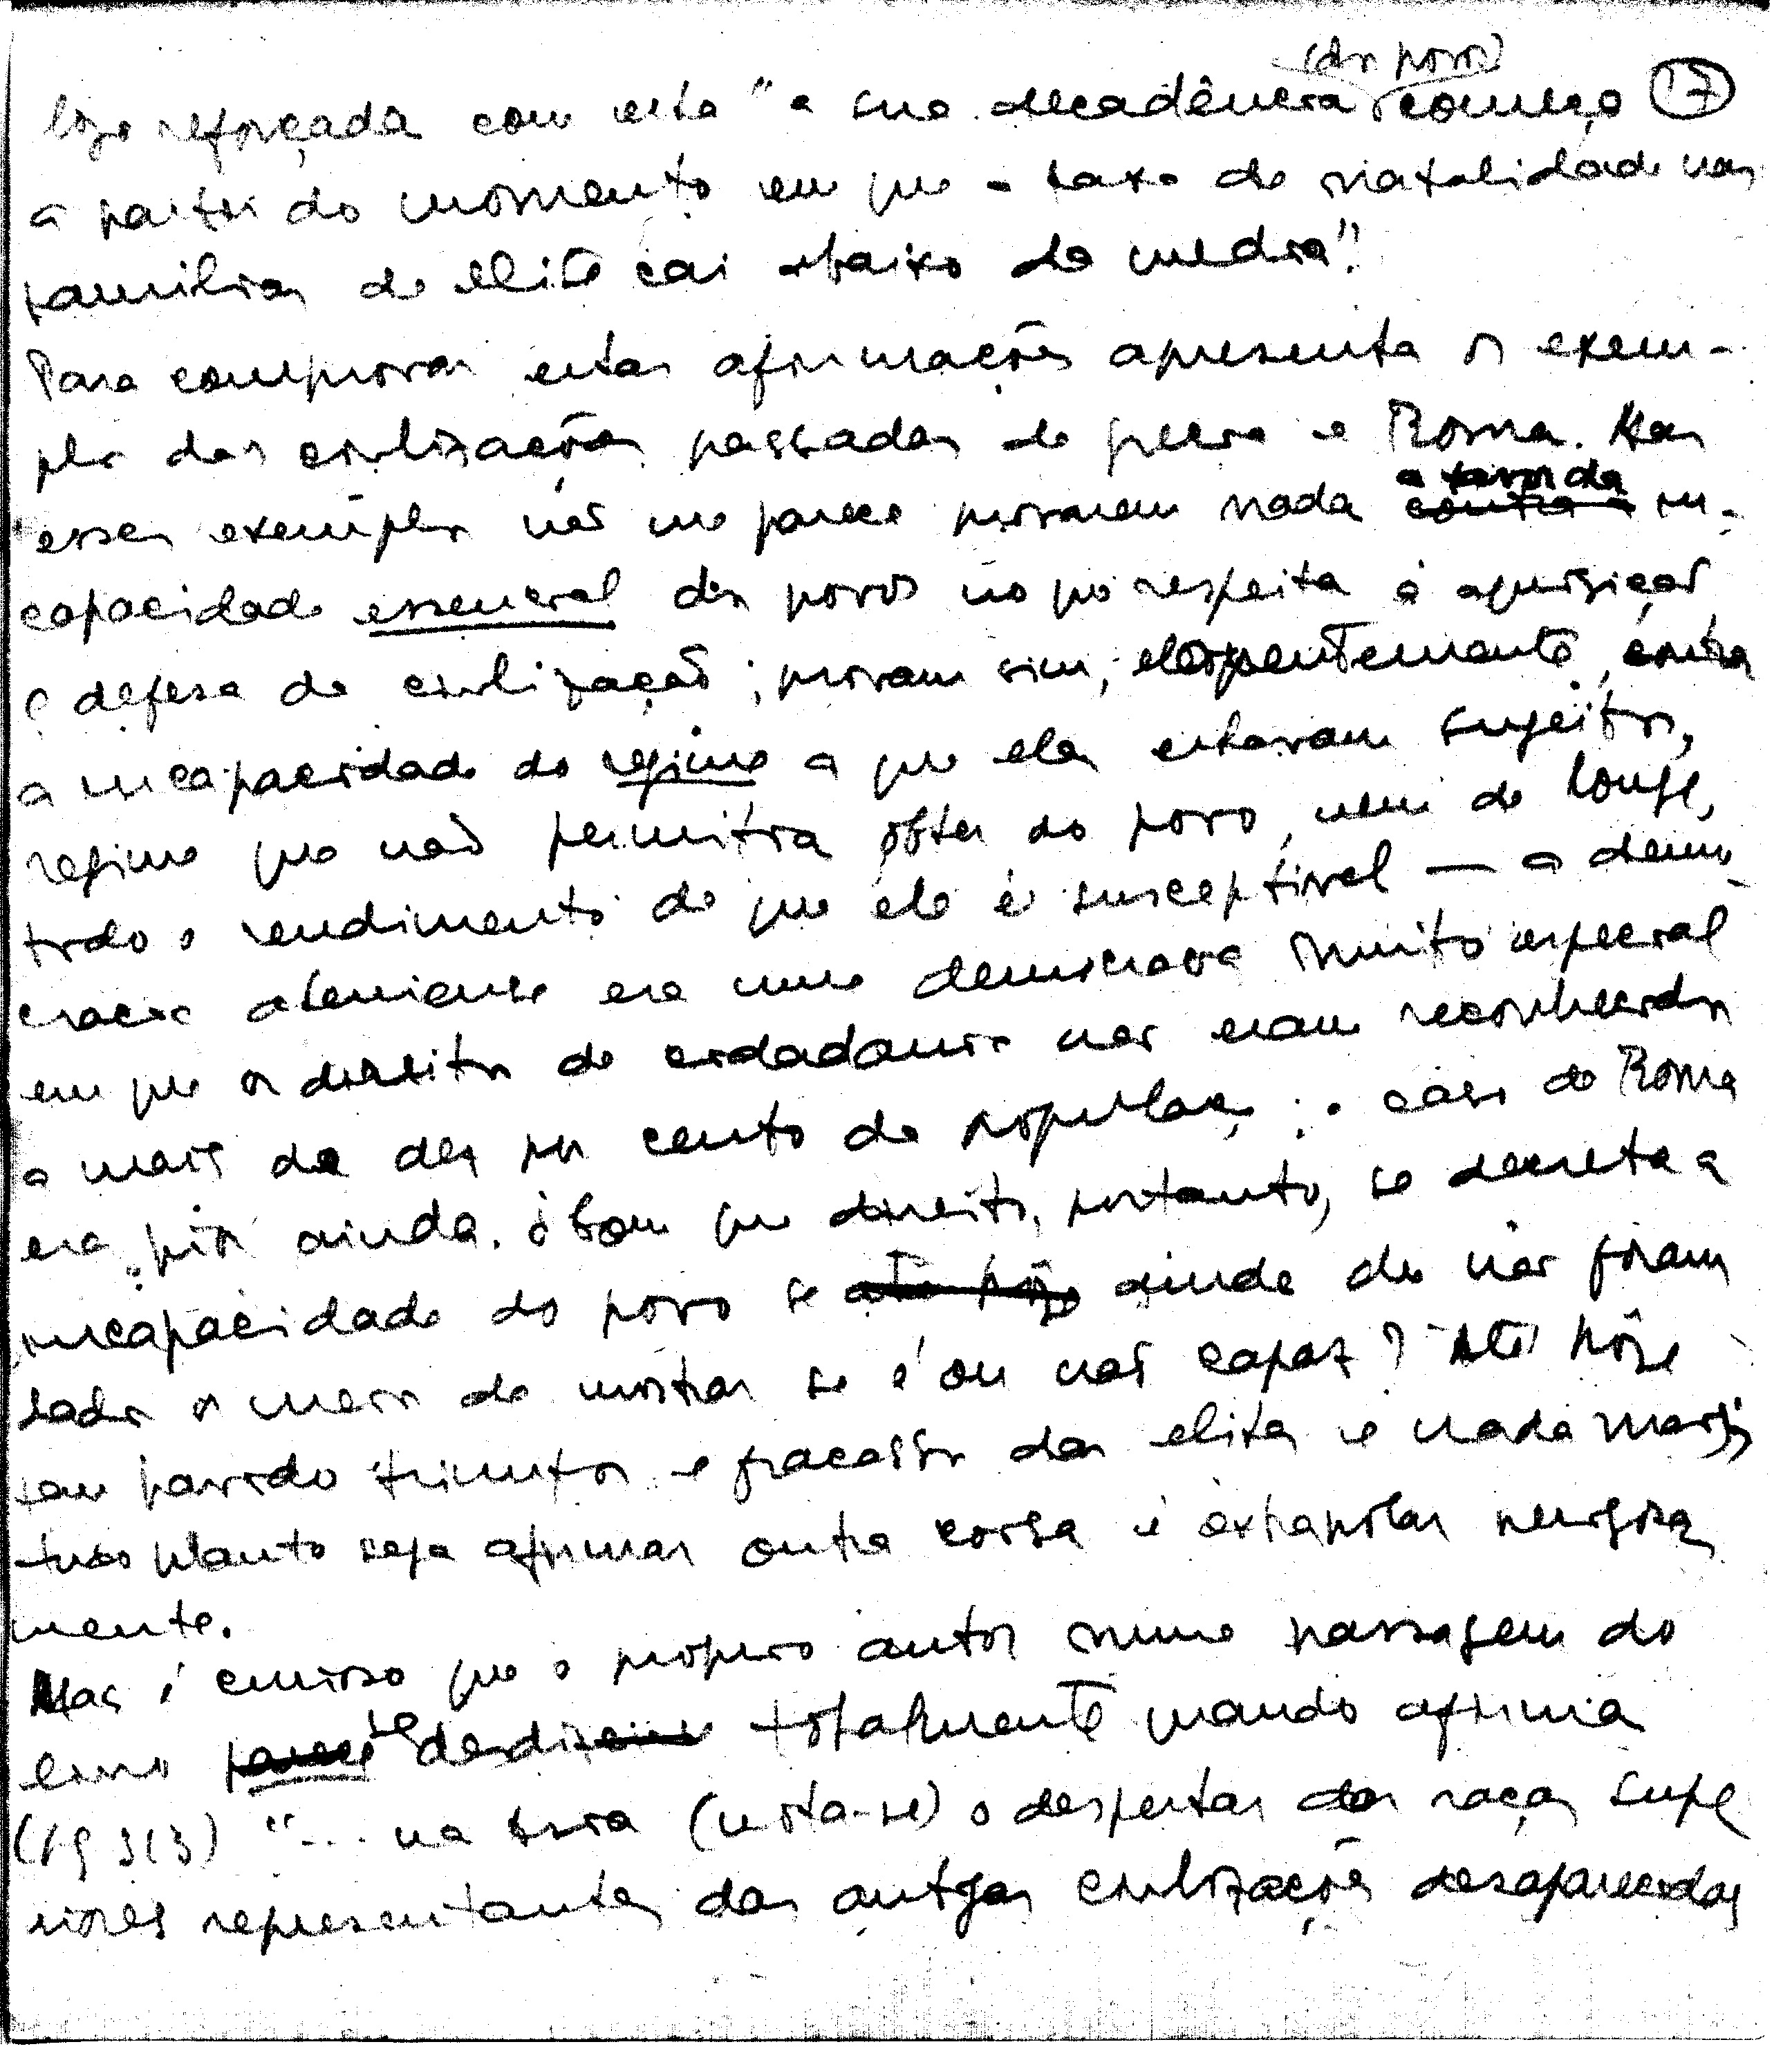 (dos povos)
logo reforçada com esta "a sua decadência começa 17
a partir do momento em que a taxa de natalidade nas
familias de elite cai abaixo da media".
Para comprovar estas afirmações apresenta os exem-
plos das civilizações passadas de Grecia e Roma. Mas
a favor da
esses exemplos não me parece provarem nada contra a in-
capacidade essencial dos povos no que respeita à aquisição
e defesa da civilização; provam sim, eloquentemente, contra
a incapacidade do regime a que eles estavam sugeitos,
regime que não permitia obter do povo, nem de longe,
todo o rendimento de que ele é susceptivel — a demo-
cracia ateniense era uma democracia muito especial
em que os direitos de cidadania não eram reconhecidos
a mais de dez por cento da população; o caso de Roma
era pior ainda. Com que direito, portanto, se decreta a
incapacidade do povo se até hoje ainda lhe não foram
dados os meios de mostrar se é ou não capaz? Até hoje
tem havido triunfos e fracassos das elites e nada mais;
tudo quanto seja afirmar outra coisa é extrapolar perigosa
mente.
Mas é curioso que o proprio autor numa passagem do
livro parece se desdizer-se totalmente quando afirma
(pg 313) "... na Asia (nota-se) o despertar das raças supe
riores representantes das antigas civilizações desaparecidas